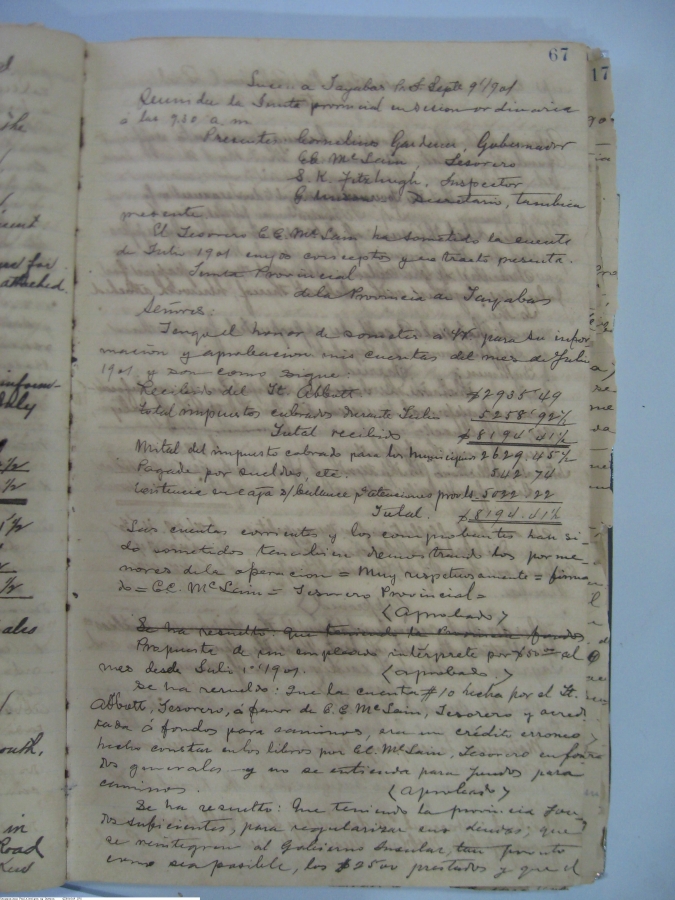 67
Lucena Tayabas P.I. Septe 9th/901
Reunida la Junta provincial en sesion ordinaria
á las 9.30 a.m
Presentes Cornelius Gardener, Gobernador
C.E. McLain, Tesorero
S. K. Fitzhugh, Inspector
Secretario, tambien
presente.
El Tesorero C.E. McLain ha sometido la cuenta
de Julio 1901 cuyos conceptos y extracto presenta.
Junta Provincial
de la Provincia de Tayabas
Señores:
Tengo el honor de someter á Vds. para su infor
macion y aprobacion mis cuentas del mes de Julio
1901 y son como sigue
Recibido del Lt. Abbott $2935.49
Total impuestos cobrados durante Julio 5258.92½
Total recibido $8194.41½
Mitad del impuesto cobrado para los Municipios 2629.45½
Pagado por sueldos, etc. 542.74
Existencia en caja s/balance 5022.22
Total. $8194.41½
Las cuentas corrientes y los comprobantes han si-
do sometidos tambien demostrando los porme-
nores de la operacion = Muy respetuosamente = firma
do = C.E. McLain = Tesorero Provincial =
<Aprobado>
Se ha resuelto: Que teniendo la Provincia fondos
Apropuesta de un empleado intérprete por $50.00 al
mes desde Julio 1º 1901. <aprobado>
Se ha resuelto: Que la cuenta #10 hecha por el Lt.
Abbott, Tesorero, á favor de C.E. McLain, Tesorero y acredi
tada á fondos para caminos, era un crédito erroneo y
hecho constar en los libros por C.E. McLain, Tesorero en fon
dos generales y no se entienda para fondos para
caminos. <aprobado>
Se ha resuelto: Que teniendo la provincia fon
dos suficientes, para regularizar sus deudas, que
se reintegren al Gobierno Insular, tan pronto
como sea posible, los $2500 prestados y que el